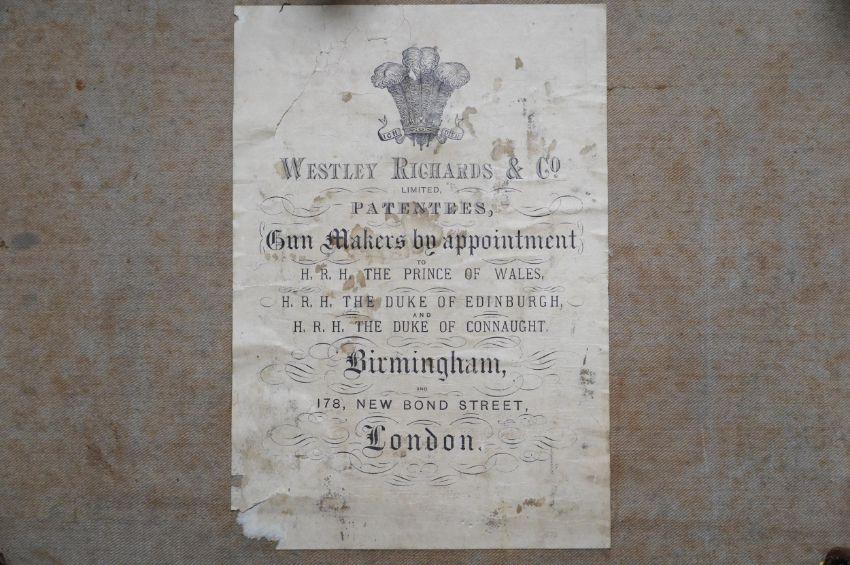 ICH DIEN
WESTLEY RICHARDS & Co.
LIMITED,
PATENTEES,
Gun Makers by appointment
TO
H. R. H. THE PRINCE OF WALES,
H. R. H. THE DUKE OF EDINBURGH,
AND
H. R. H. THE DUKE OF CONNAUGHT.
Birmingham,
AND
178, NEW BOND STREET,
London.